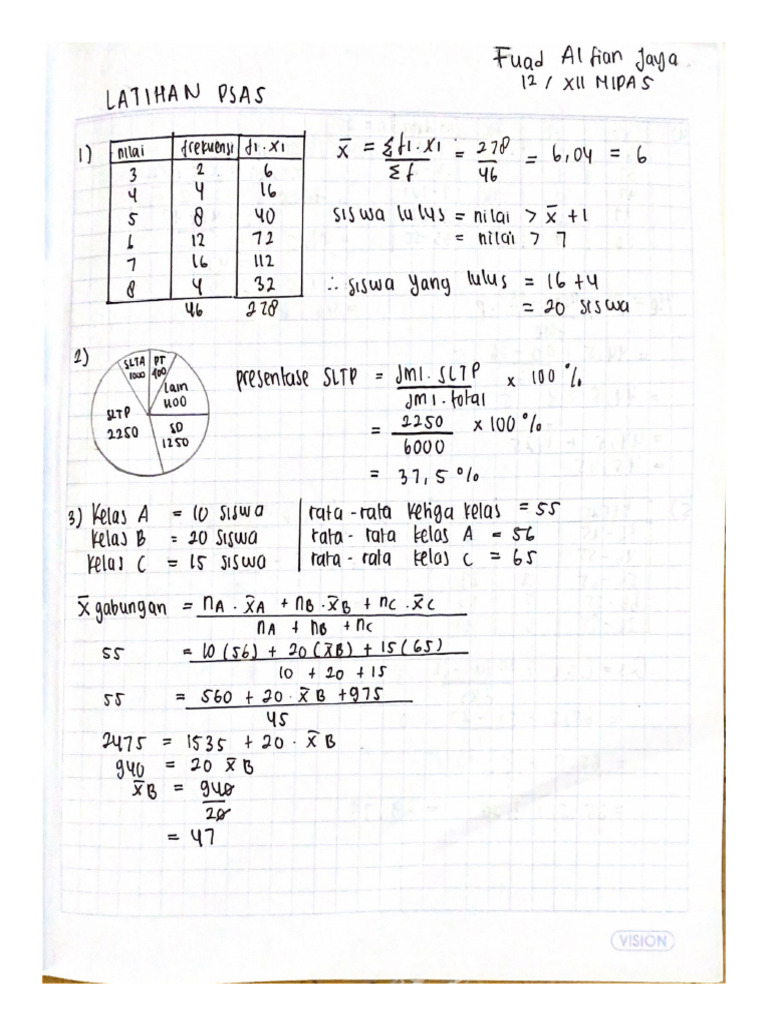 Fuad Alfian Jaya
12 / XII MIPA5
LATIHAN PSAS
1) nilai frekuensi f1.x1
3 2 6
4 4 16
5 8 40
6 12 72
7 16 112
8 4 32
46 278
x̄ = Σf1.x1 / Σf = 278 / 46 = 6,04 = 6
siswa lulus = nilai > x̄ + 1
= nilai > 7
∴ siswa yang lulus = 16 + 4
= 20 siswa
2)
SLTA 1000
PT 100
lain 1100
SLTP 2250
SD 1250
presentase SLTP = Jml. SLTP / Jml. total x 100 %
= 2250 / 6000 x 100 %
= 37,5 %
3) Kelas A = 10 siswa
Kelas B = 20 siswa
Kelas C = 15 siswa
rata-rata ketiga kelas = 55
rata-rata kelas A = 56
rata-rata kelas C = 65
x̄ gabungan = nA . x̄A + nB . x̄B + nC . x̄C / nA + nB + nC
55 = 10 (56) + 20 (x̄B) + 15 (65) / 10 + 20 + 15
55 = 560 + 20 . x̄B + 975 / 45
2475 = 1535 + 20 . x̄B
940 = 20 x̄B
x̄B = 940 / 20
= 47
VISION